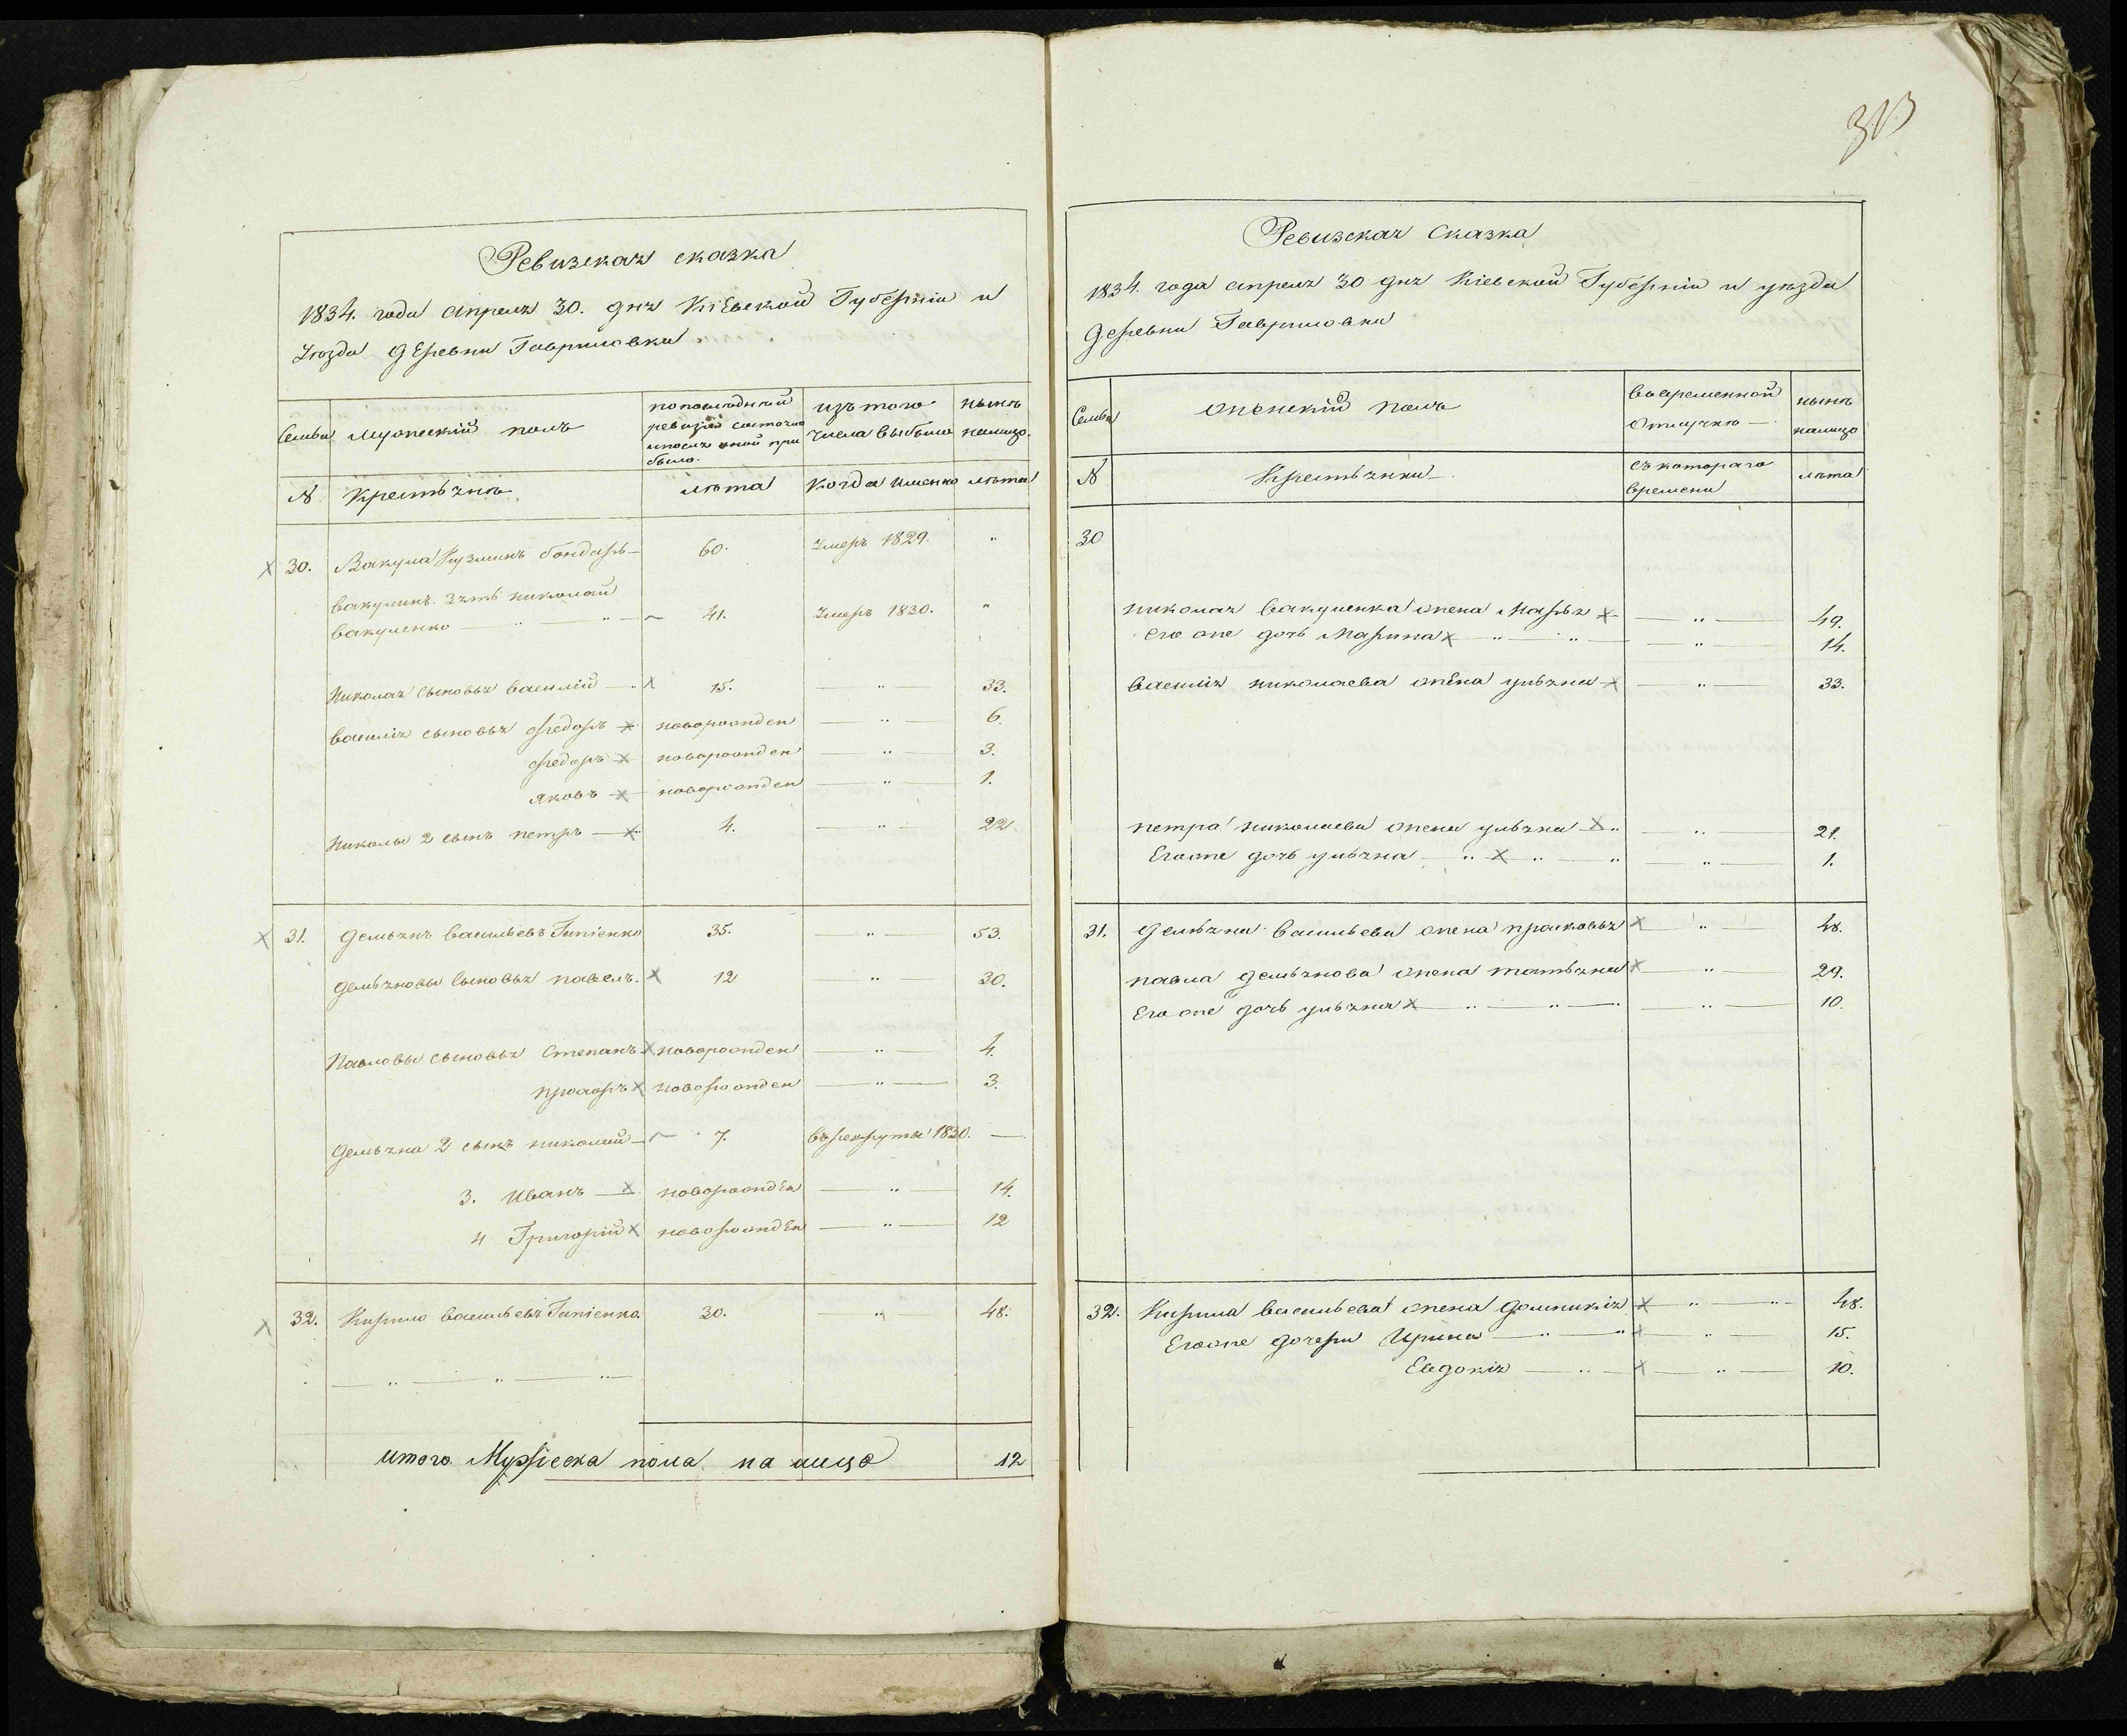 Ревизская сказка
1834. года апреля 30. дня Кіевской Губерніи и
Уезда деревни Гавриловки
Семьи
мужеский полъ
по последней
ревизіи состояло
и после оной при
было.
изъ того
числа выбыло
нынѣ
налицо.
№
Крестьянѣ
лѣта
когда именно
лѣта
30. Вакула Кузминъ бондарь 60. Умеръ 1829. "
Вакулинъ зять николай
Вакуленко — " — " — 41. Умеръ 1830. "
Николая сыновья Василій — х 15. — " — 33.
Василія сыновья федоръ х новорожден — " — 6.
федоръ х новорожден — " — 3.
яковъ х новорожден — " — 1.
Николы 2 сынъ петръ — х 4. — " — 22
31. Демьянъ Васильевъ Гапіенко 35. — " — 53.
Демьяновы сыновья павелъ. х 12 — " — 30.
Павловы сыновья Степанъ х новорожден — " — 4.
прохоръ х новорожден — " — 3.
Демьяна 2 сынъ николай — 7. въ рекруты 1830. —
3. Иванъ — х новорожден — " — 14.
4 Григорій х новорожден — " — 12
32. Кирило Васильевъ Гапіенко. 30. — " — 48.
— " — " — " —
итого Мужеска пола на лицо 12
313
Ревизская Сказка
1834. года апреля 30 дня Кіевской Губерніи и уезда
Деревни Гавриловки
Семьи
женскій полъ
во временной
отлучке —
нынѣ
налицо
№
Крестьянки
съ котораго
времени
лѣта
30
николая Вакуленка жена Марья х — " — 49.
его же дочь Марина х — " — " — — " — 14.
Василія николаева жена ульяна х — " — 33.
петра николаева жена ульяна х " — " — 21.
Его же дочь ульяна — " х " — " — " — 1.
31. Демьяна Васильева жена прасковья х — " — 48.
павла демьянова жена татьяна х — " — 29.
Его же дочь ульяна х — " — " — — " — 10.
32. Кирила Васильева жена Домникія х — " — " — 48.
Его же дочери Ирина — " — " х — " — 15.
Евдокія — " — х — " — 10.